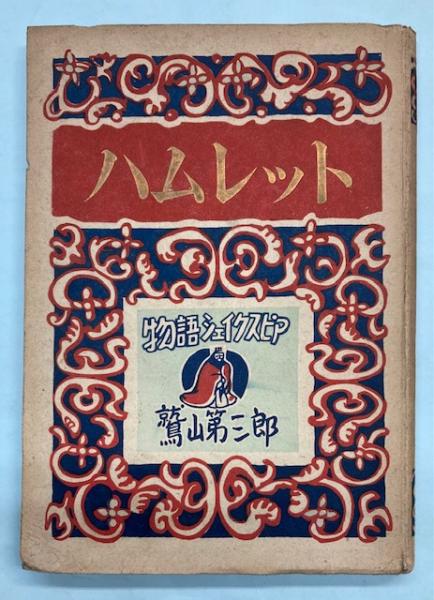 ハムレット
物語シェイクスピア
鷲山第三郎